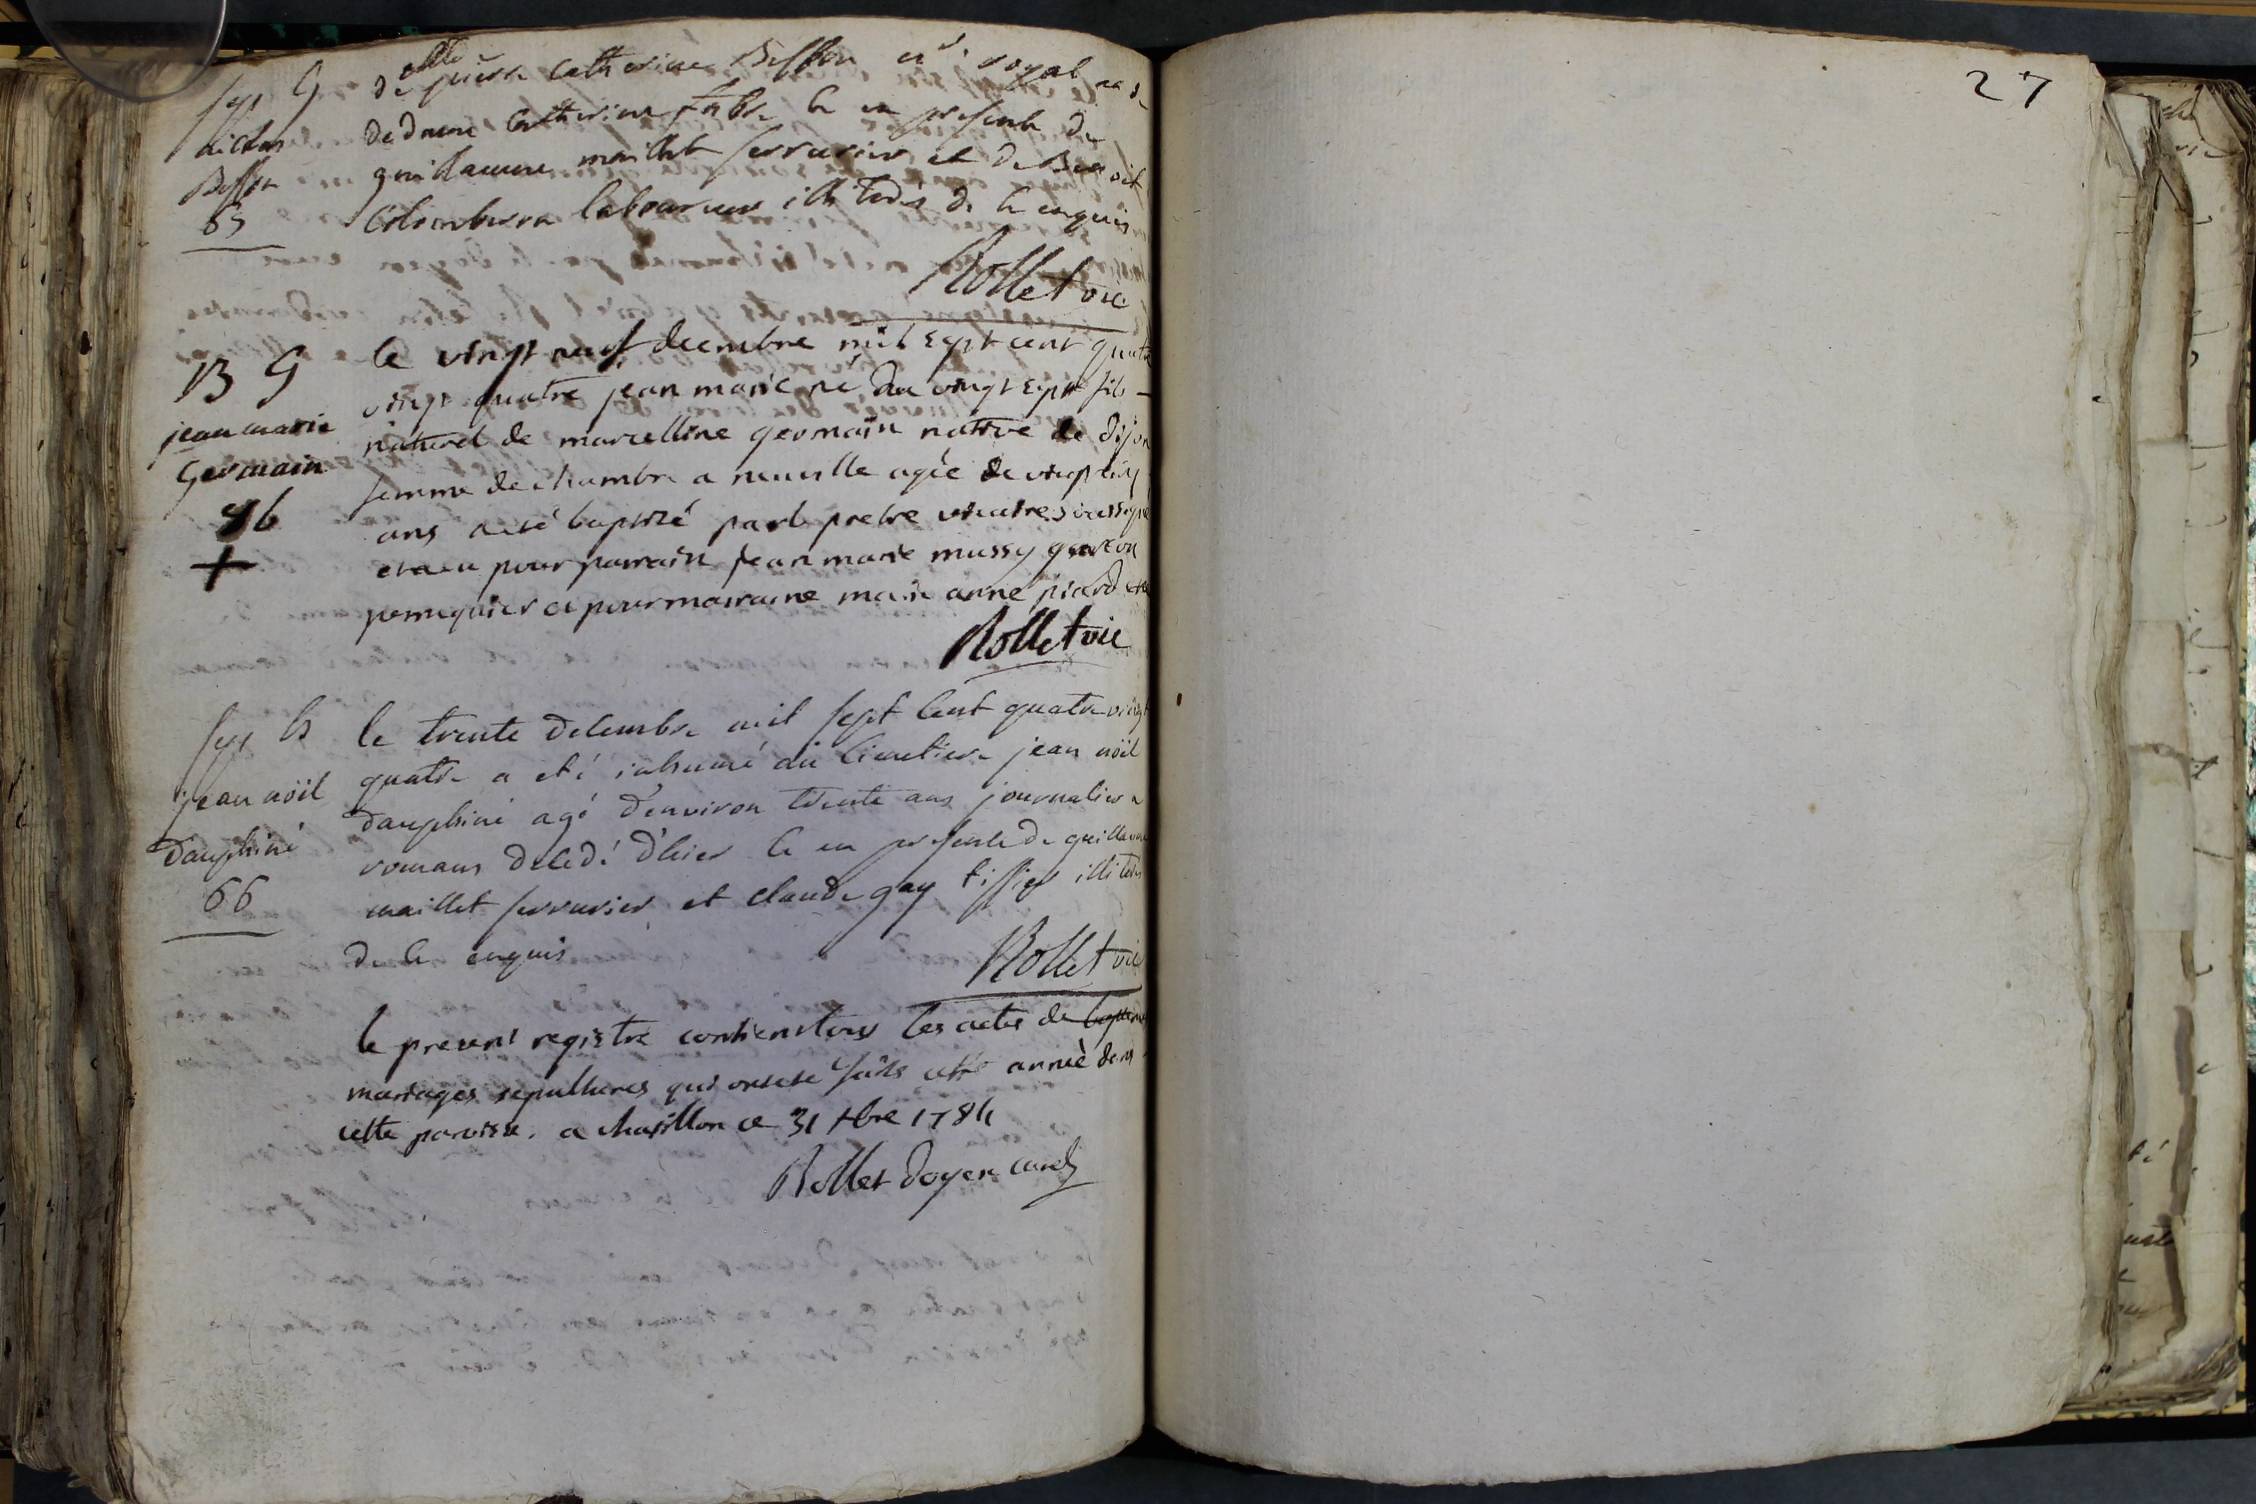 27
Sep G
de pierre catherine Besson
royal
de dame catherine fabre ce en presence de
guillaume maillet serrurier et de Benoit
Besson
65
Colomberon laboureur illiterés de ce enquis
Rollet vic
B G
jean marie
Germain
96
+
le vingt neuf decembre mil sept cent quatre
vingt quatre jean marie né du vingt sept fils
naturel de marcelline germain native de dijon
femme de chambre a neuville agée de vingt
ans a eté baptisé par le pretre vicaire soussigné
et a eu pour parrain jean marie mussy garcon
perruquier et pour marraine marie anne picard
Rollet vic
Sep G
jean nöil
dauphiné
66
le trente decembre mil sept cent quatre vingt
quatre a eté inhumé au cimetiere jean nöil
dauphiné agé d'environ trente ans journalier a
romans decedé d'hier ce en presence de guillaume
maillet serrurier et claude gay tissier illiterés
de ce enquis
Rollet vic
le present registre contient tous les actes de bapteme
mariages sepultures qui ont eté faits cette année dans
cette paroisse. a chatillon ce 31 xbre 1784
Rollet doyen curé